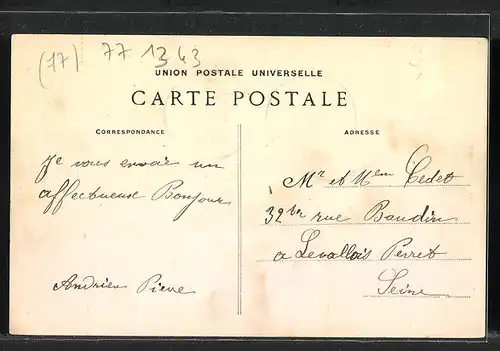 (17) 77 1343
UNION POSTALE UNIVERSELLE
CARTE POSTALE
CORRESPONDANCE
Je vous envoie un
affectueuse Bonjour
Andrien Pierre
ADRESSE
Mr et Mem Cedet
32 bis rue Baudin
a Levallois Perret
Seine